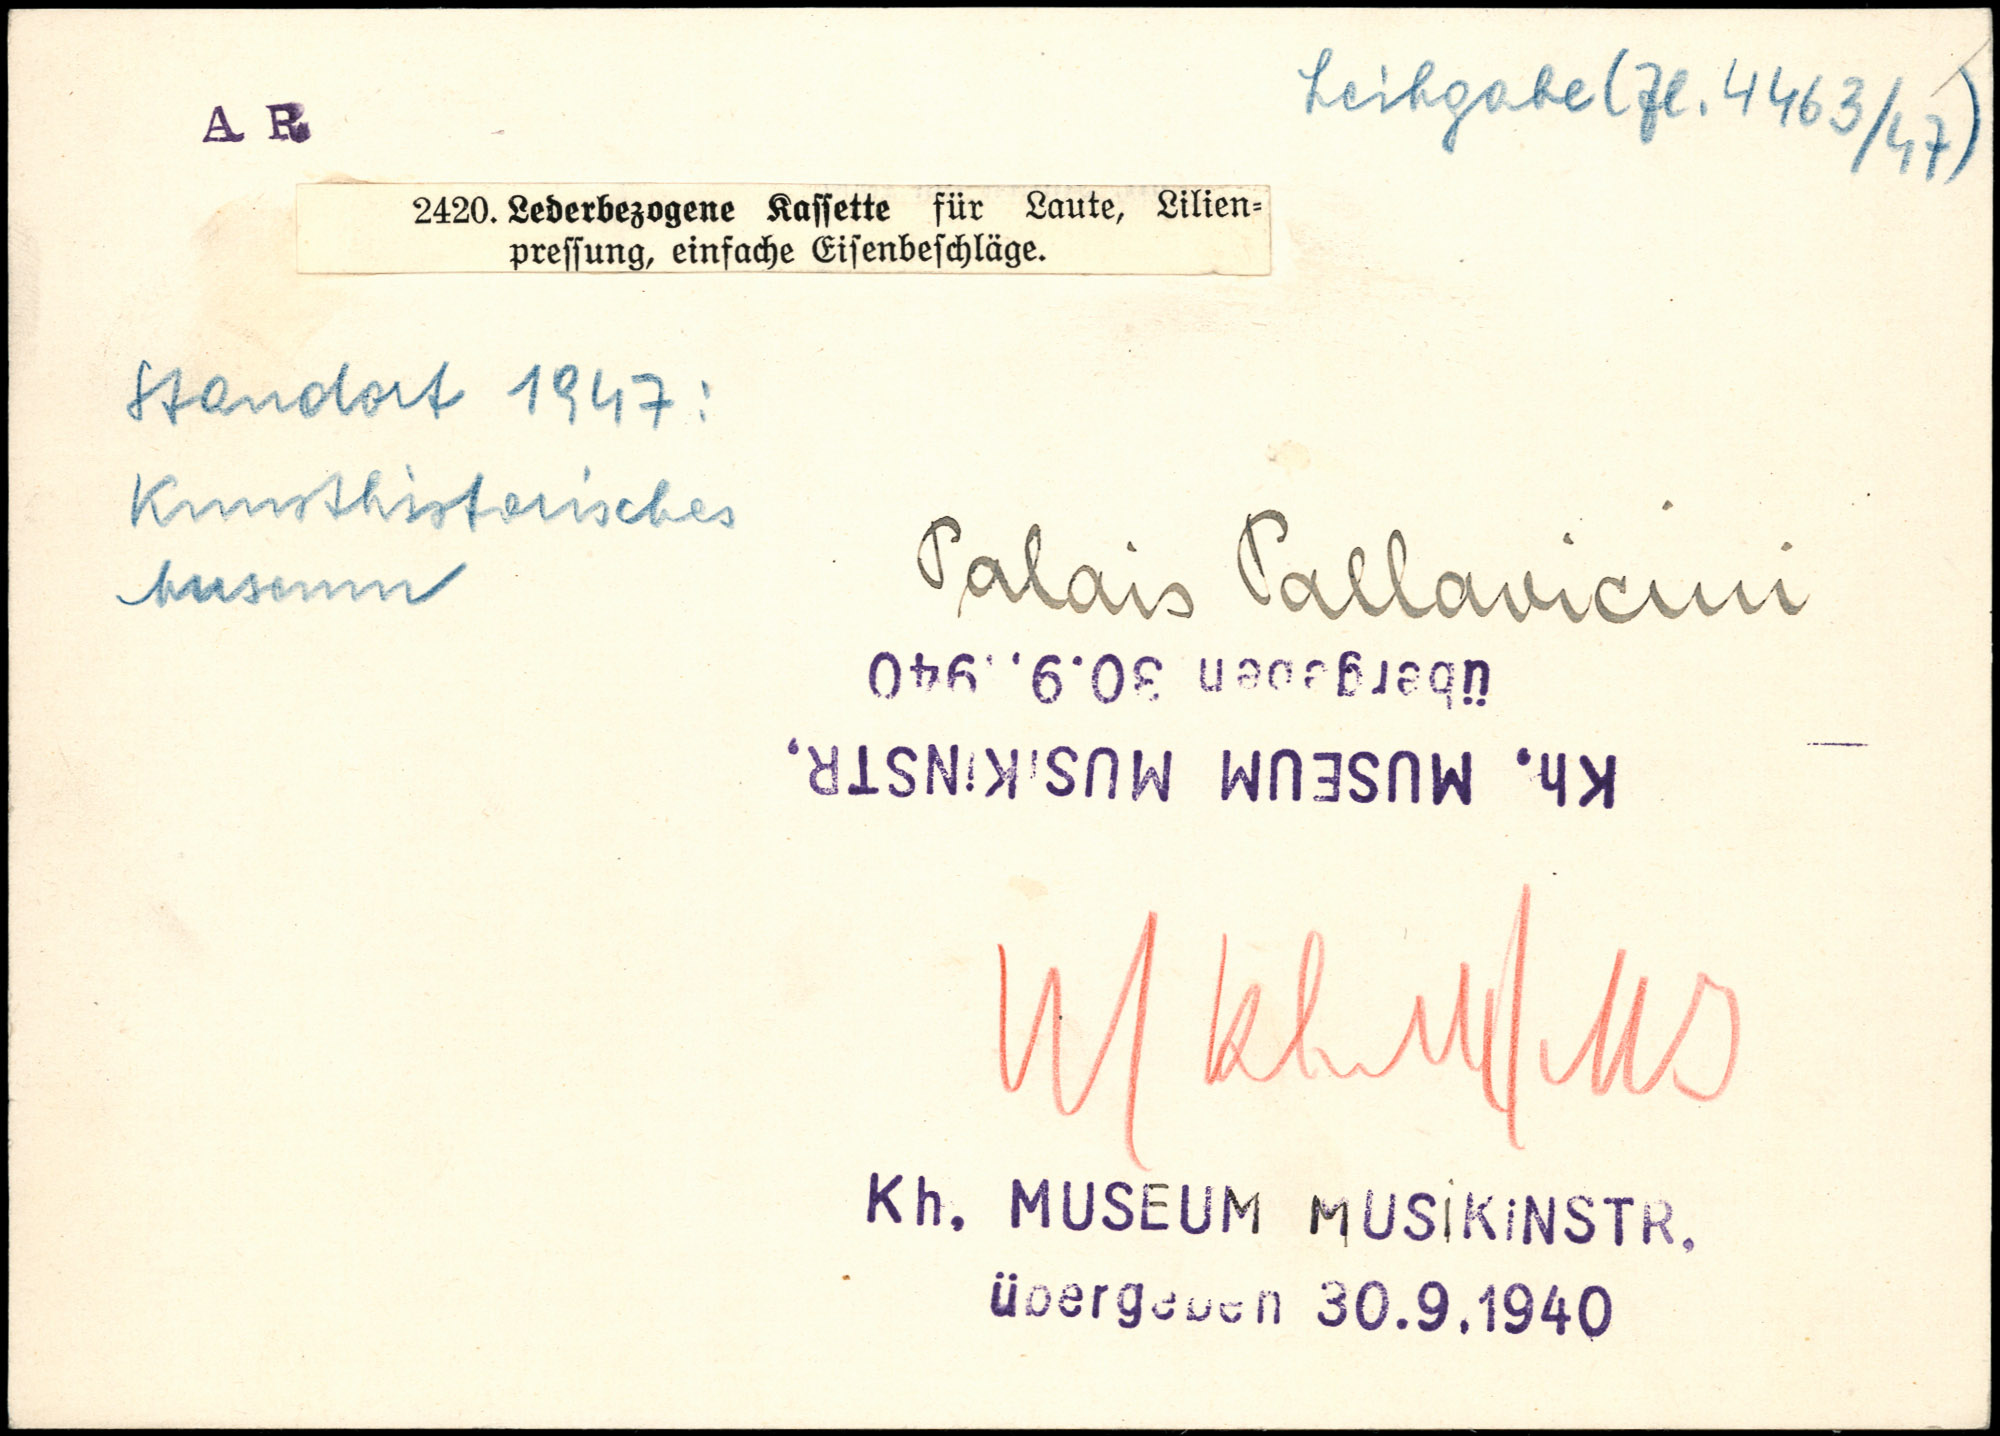 Leihgabe (Zl. 4463/47)
A R
2420. Lederbezogene Kaſſette für Laute, Lilien-
preſſung, einfache Eiſenbeſchläge.
Standort 1947:
Kunsthistorisches
Museum
Palais Pallavicini
Kh. MUSEUM MUSiKiNSTR.
übergeben 30.9.1940
Kh. MUSEUM MUSiKiNSTR.
übergeben 30.9.1940